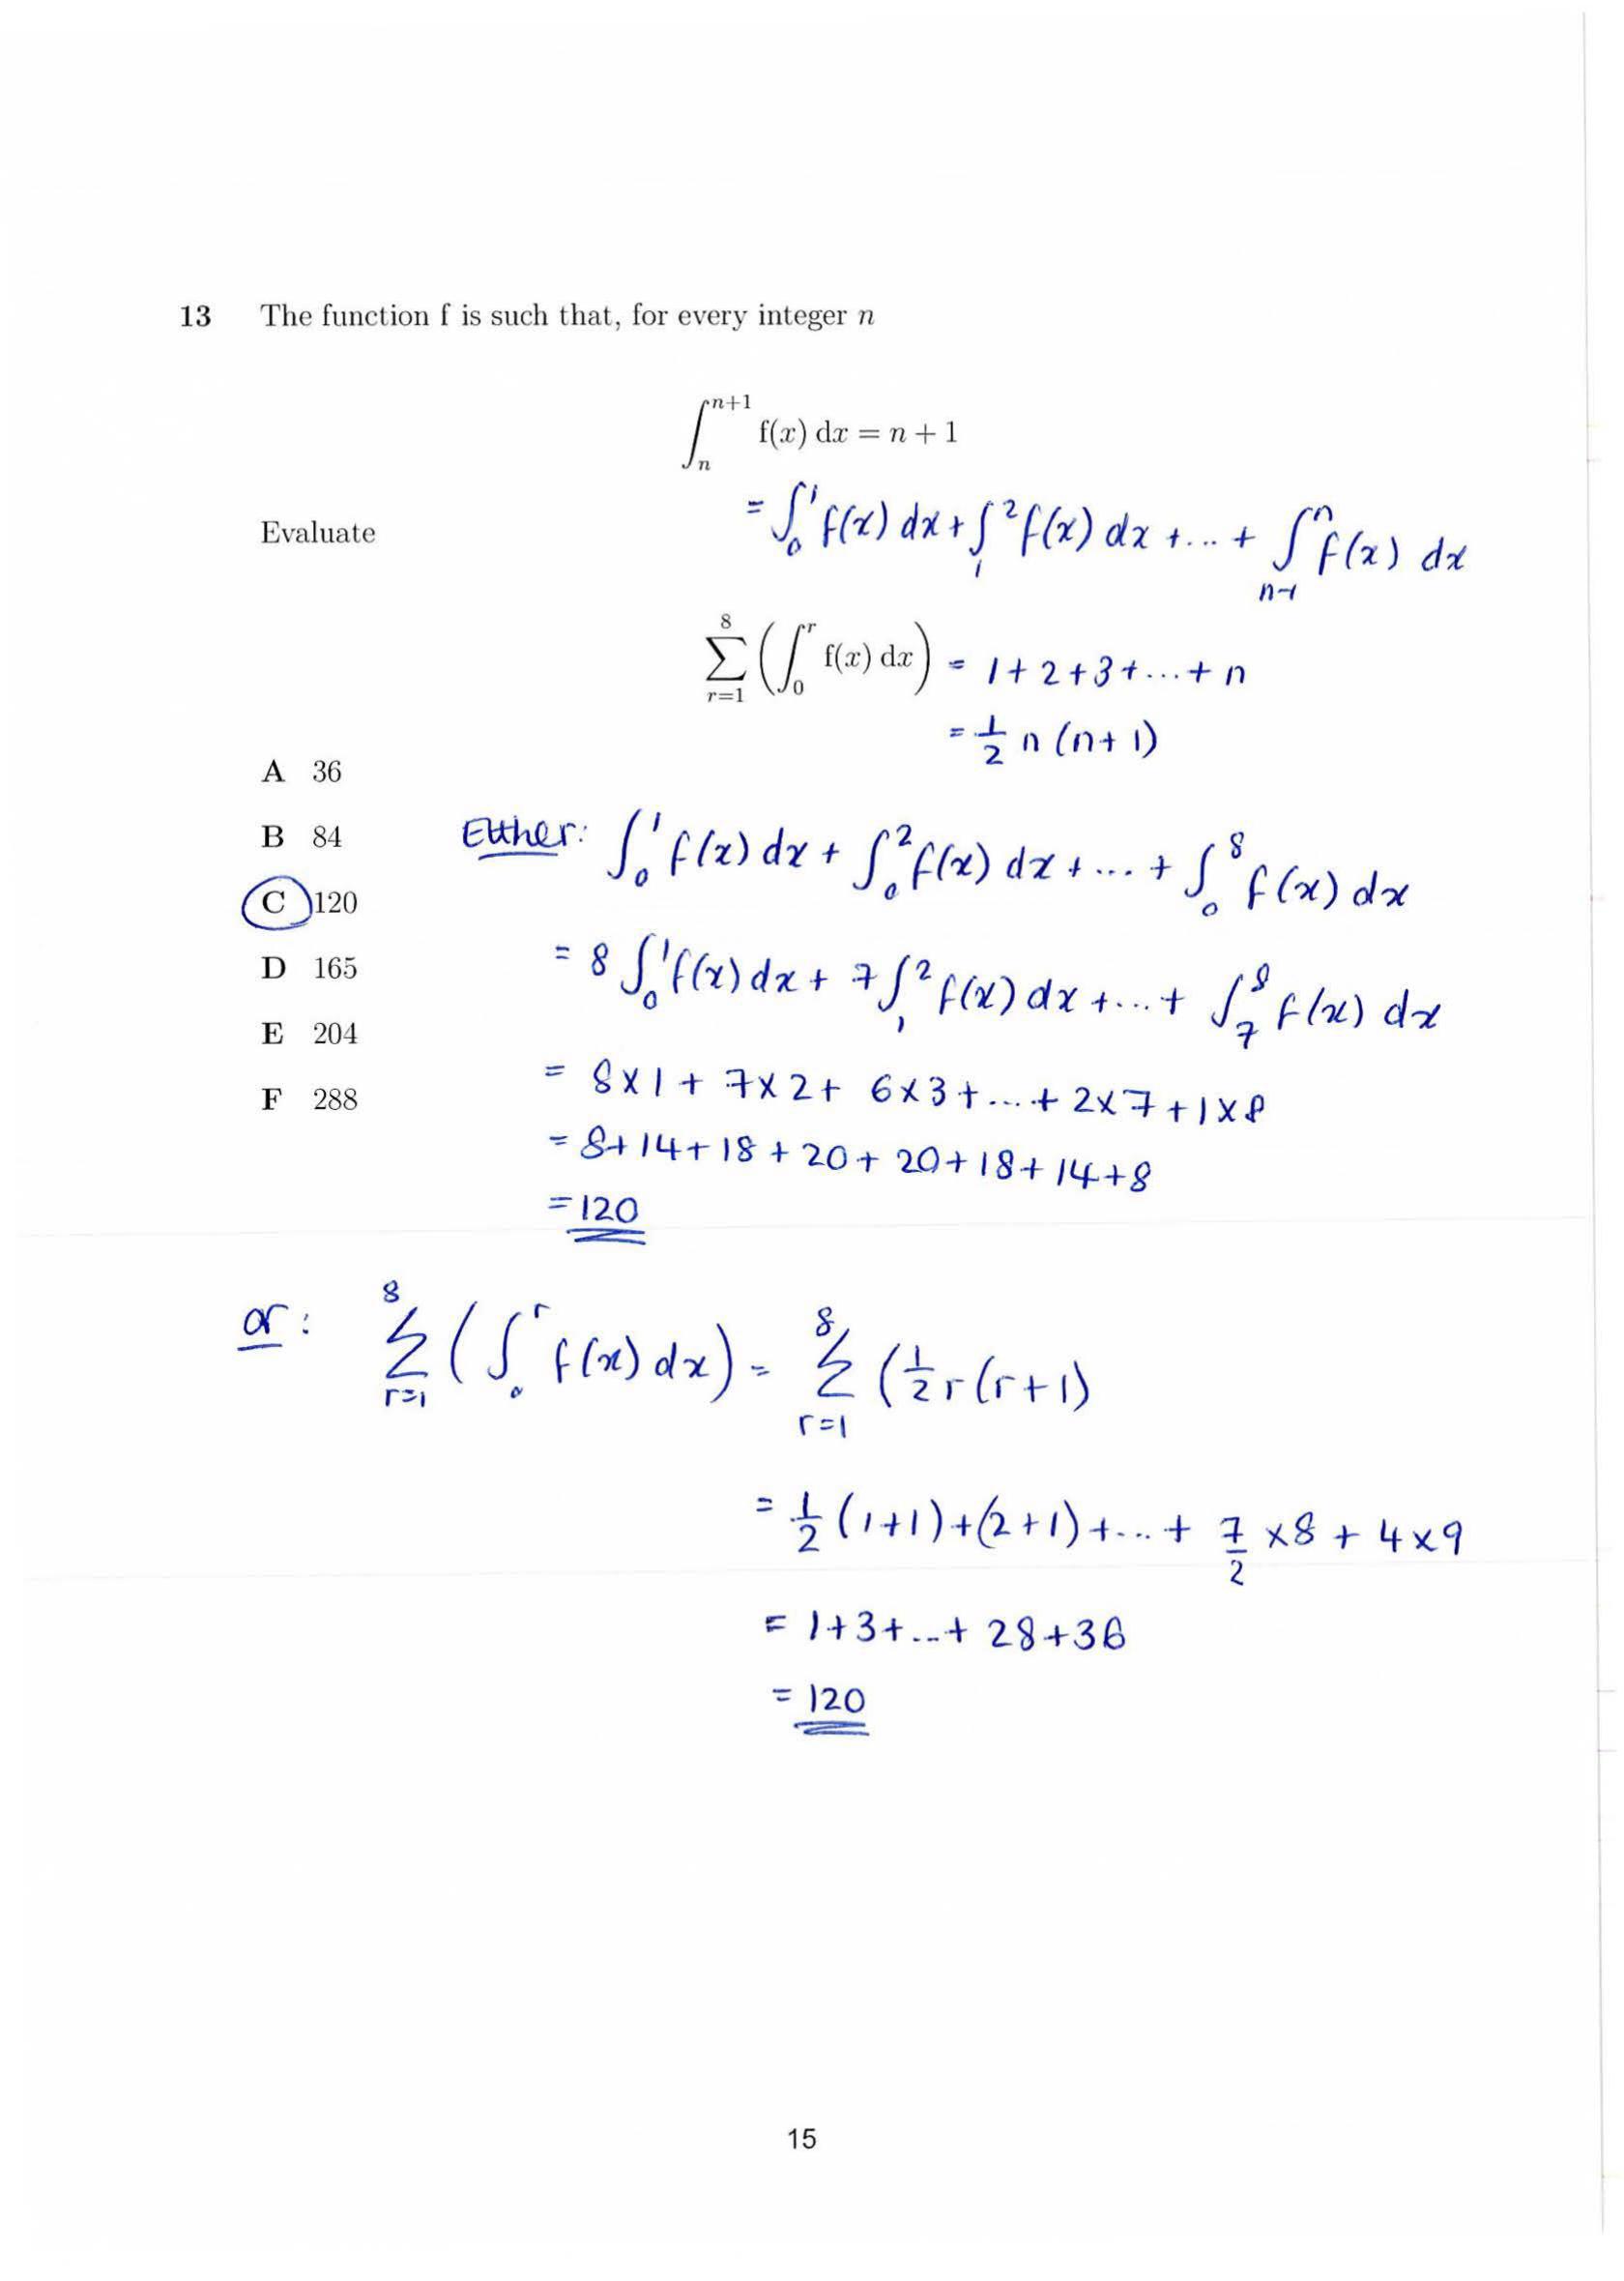 13 The function f is such that, for every integer n
∫ₙⁿ⁺¹ f(x) dx = n + 1
= ∫₀¹ f(x) dx + ∫₁² f(x) dx + ... + ∫ₙ₋₁ⁿ f(x) dx
Evaluate
∑ᵣ₌₁⁸ (∫₀ʳ f(x) dx) = 1 + 2 + 3 + ... + n
= 1/2 n (n + 1)
A 36
B 84
C 120
D 165
E 204
F 288
Either: ∫₀¹ f(x) dx + ∫₀² f(x) dx + ... + ∫₀⁸ f(x) dx
= 8 ∫₀¹ f(x) dx + 7 ∫₁² f(x) dx + ... + ∫₇⁸ f(x) dx
= 8 × 1 + 7 × 2 + 6 × 3 + ... + 2 × 7 + 1 × 8
= 8 + 14 + 18 + 20 + 20 + 18 + 14 + 8
= 120
or: ∑ᵣ₌₁⁸ (∫₀ʳ f(x) dx) = ∑ᵣ₌₁⁸ (1/2 r (r + 1)
= 1/2 (1 + 1) + (2 + 1) + ... + 7/2 × 8 + 4 × 9
= 1 + 3 + ... + 28 + 36
= 120
15